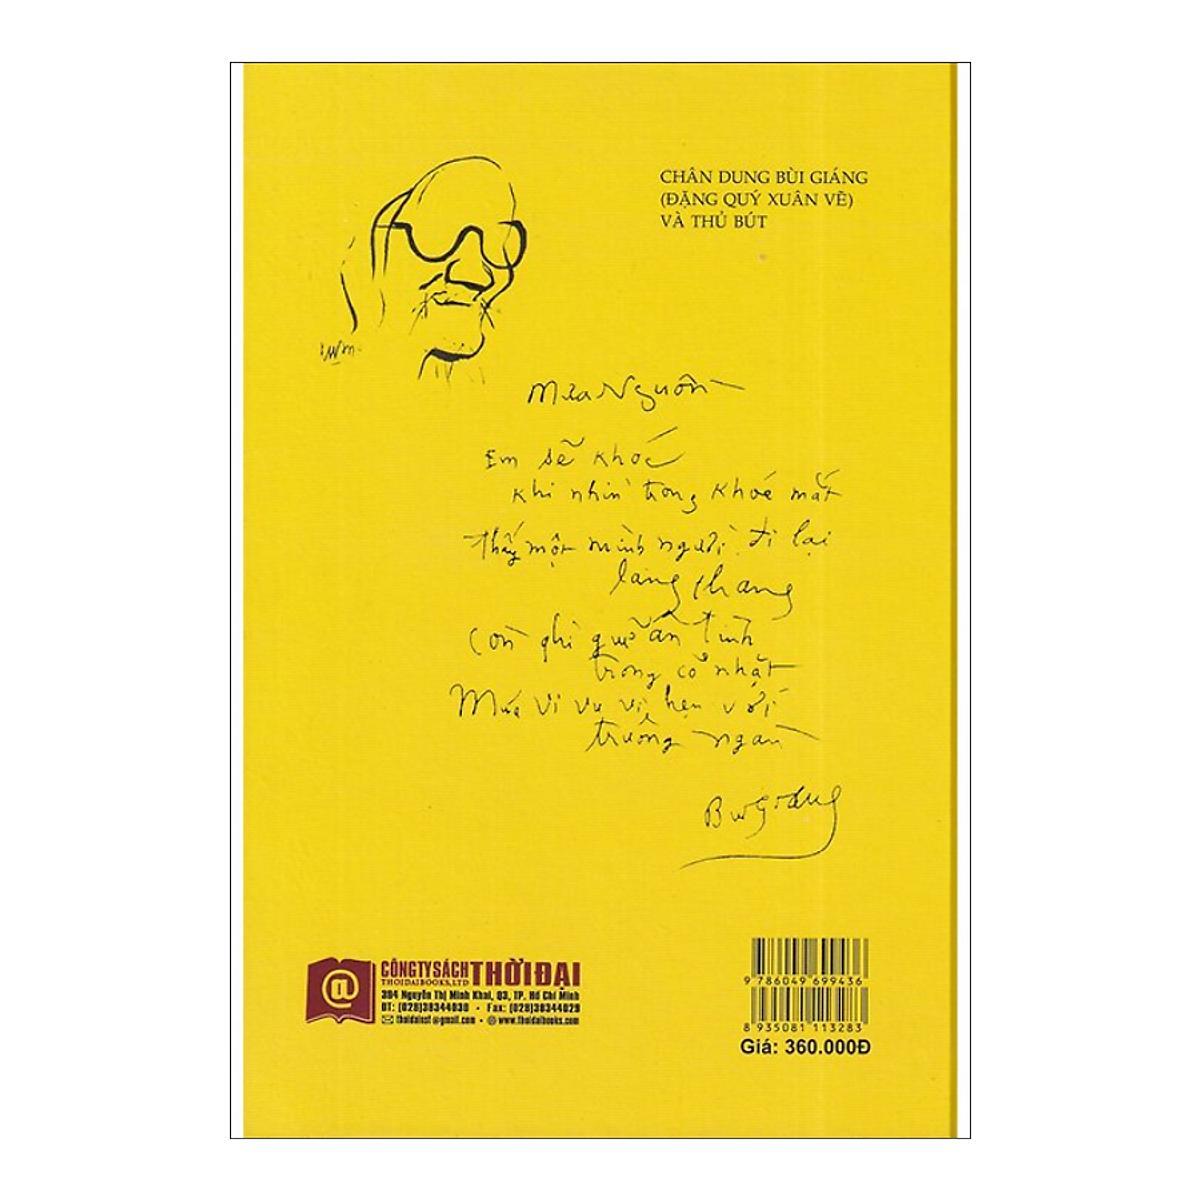 CHÂN DUNG BÙI GIÁNG
(ĐẶNG QUÝ XUÂN VẼ)
VÀ THỦ BÚT
Mưa Nguồn
Em sẽ khóc
khi nhìn trong khoé mắt
Thấy một mình người đi lại
lang thang
Còn ghì quê ân tình
trong cỏ nhặt
Mưa vi vu vì hẹn với
trường ngàn
Bùi Giáng
CÔNG TY SÁCH THỜI ĐẠI
THOIDAIBOOKS., LTD
394 Nguyễn Thị Minh Khai, Q3, TP. Hồ Chí Minh
ĐT: (028)38344030 - Fax: (028)38344029
thoidainst@gmail.com - www.thoidaibooks.com
9 786049 699436
8 935081 113283
Giá: 360.000Đ